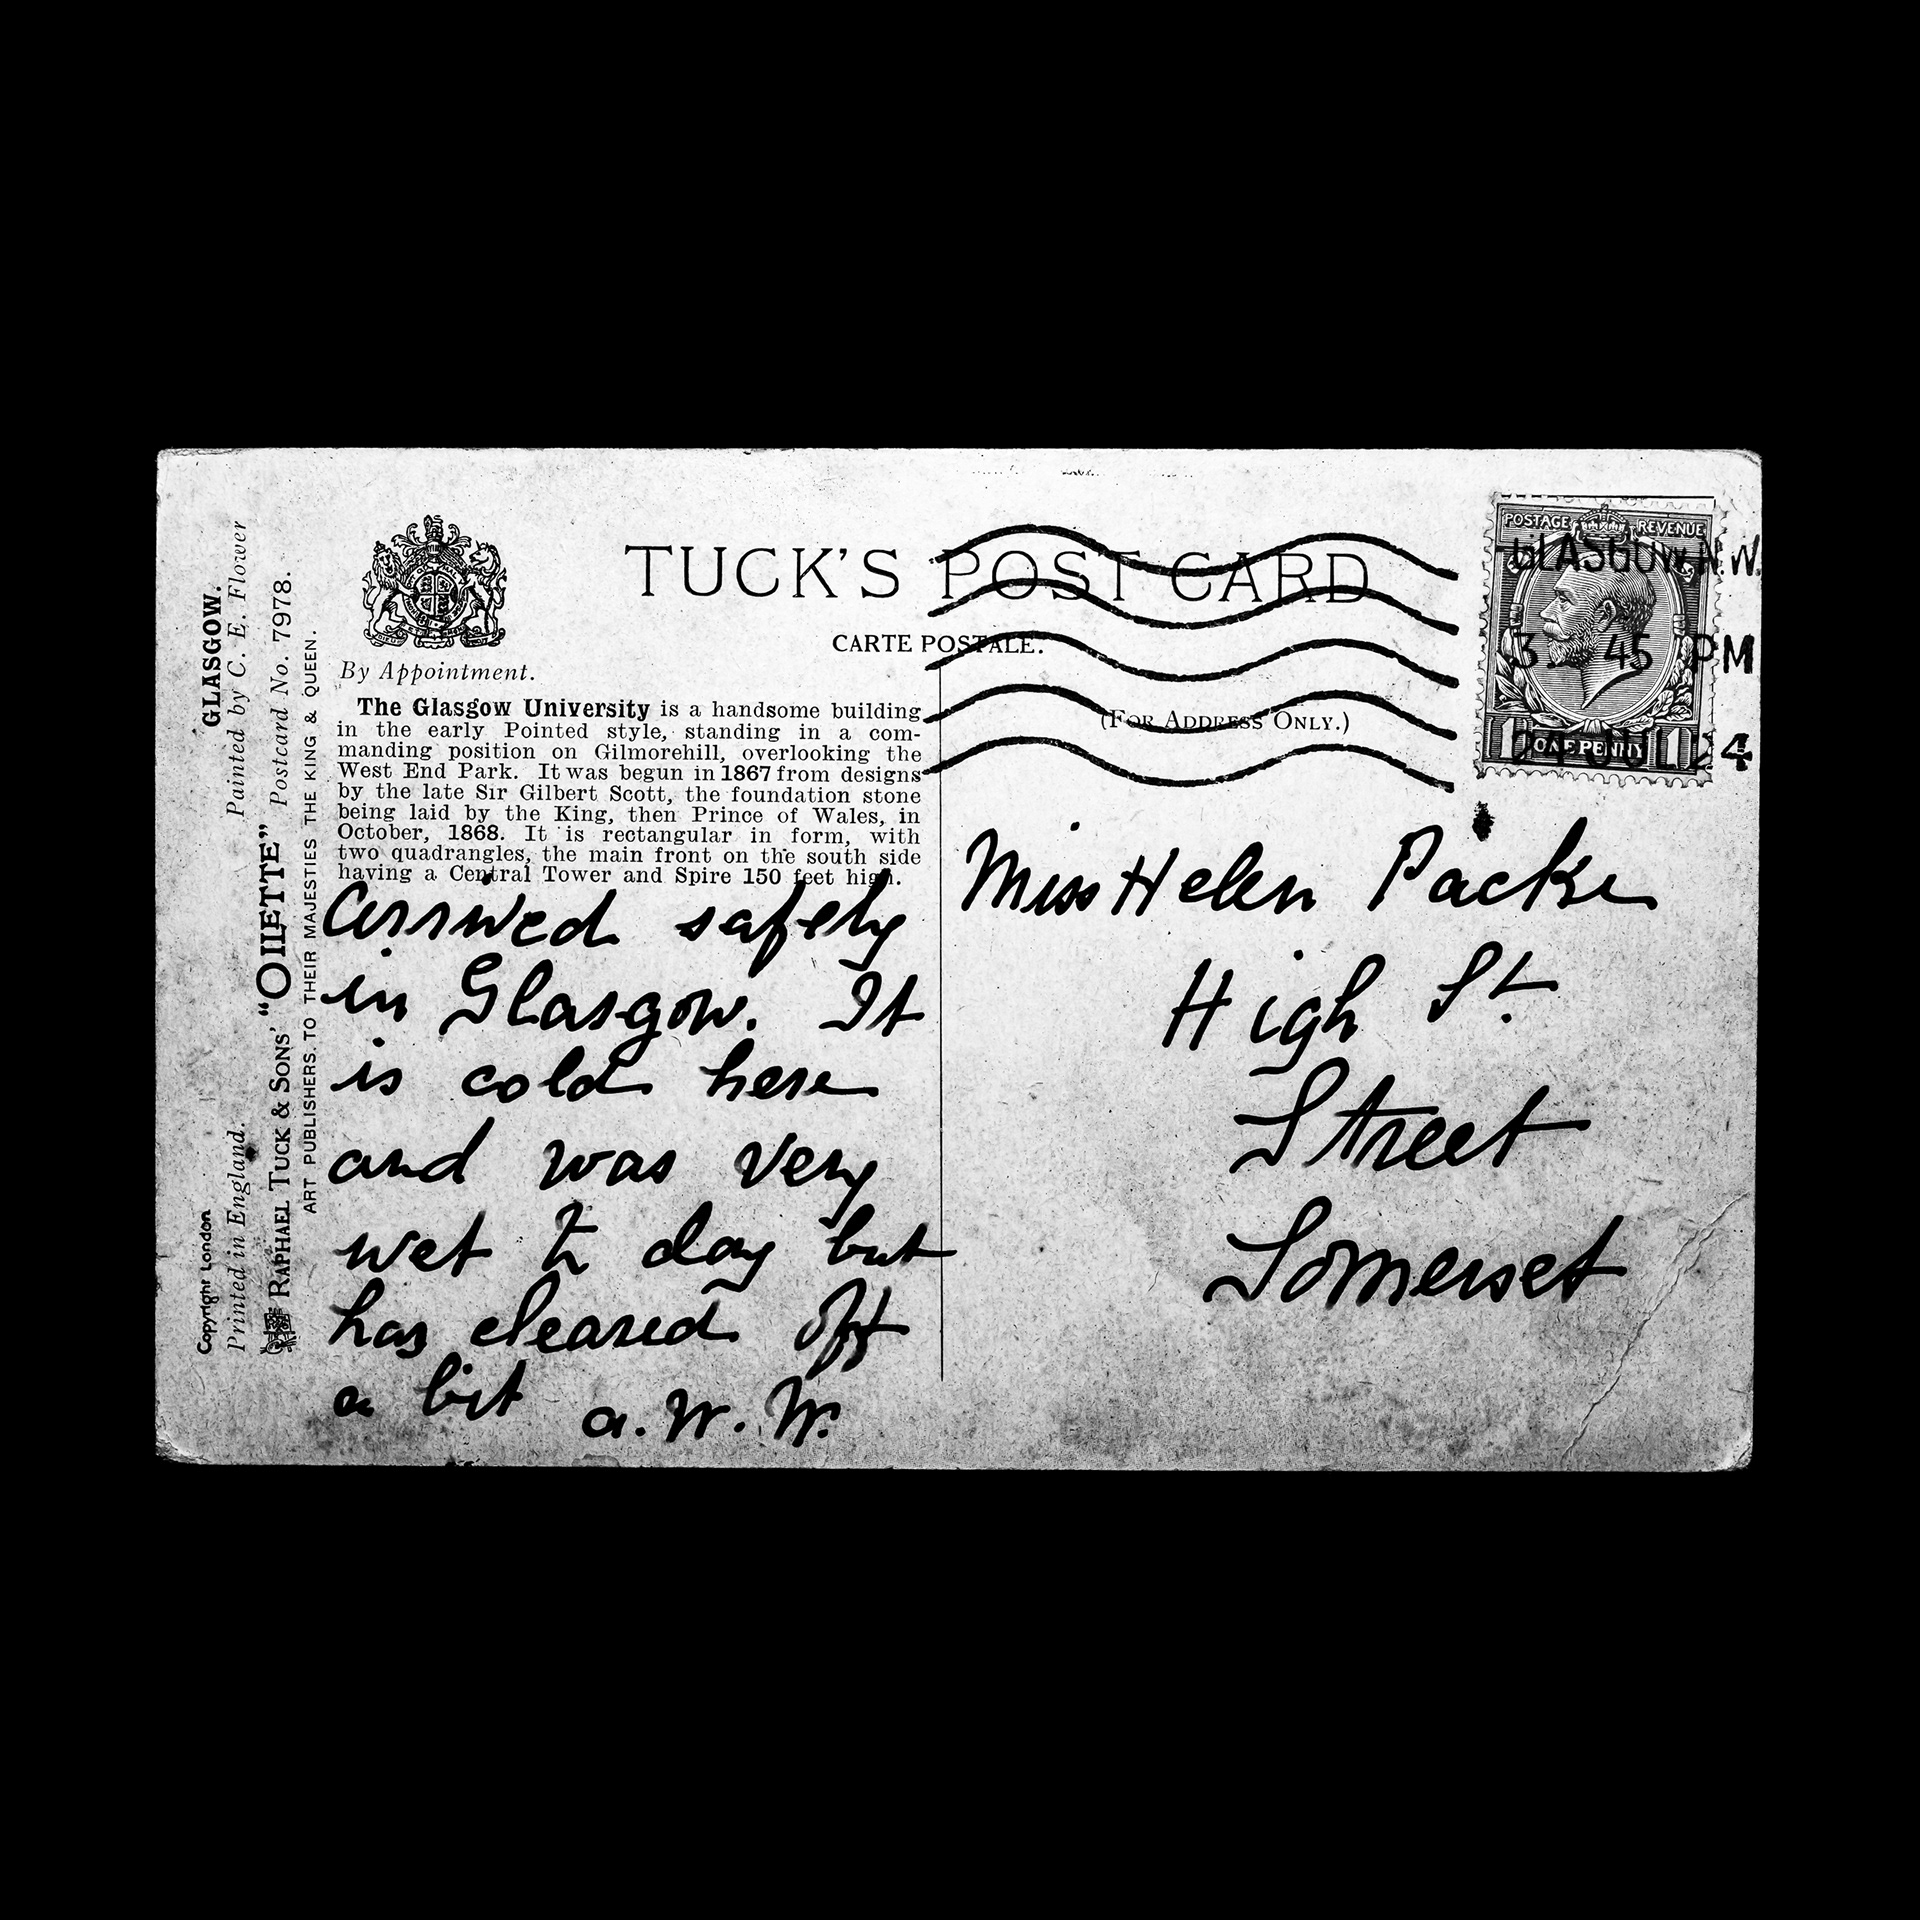 GLASGOW.
Painted by C. E. Flower
Copyright London
Printed in England.
RAPHAEL TUCK & SONS' "OILETTE" Postcard No. 7978.
ART PUBLISHERS. TO THEIR MAJESTIES THE KING & QUEEN.
By Appointment.
TUCK'S POST CARD
CARTE POSTALE.
The Glasgow University is a handsome building
in the early Pointed style, standing in a com-
manding position on Gilmorehill, overlooking the
West End Park. It was begun in 1867 from designs
by the late Sir Gilbert Scott, the foundation stone
being laid by the King, then Prince of Wales, in
October, 1868. It is rectangular in form, with
two quadrangles, the main front on the south side
having a Central Tower and Spire 150 feet high.
Arrived safely
in Glasgow. It
is cold here
and was very
wet to day but
has cleared off
a bit a.W.W.
(FOR ADDRESS ONLY.)
POSTAGE REVENUE
1 ONE PENNY 1
GLASGOW N.W.
3 45 PM
JUL 24
Miss Helen Packe
High St.
Street
Somerset